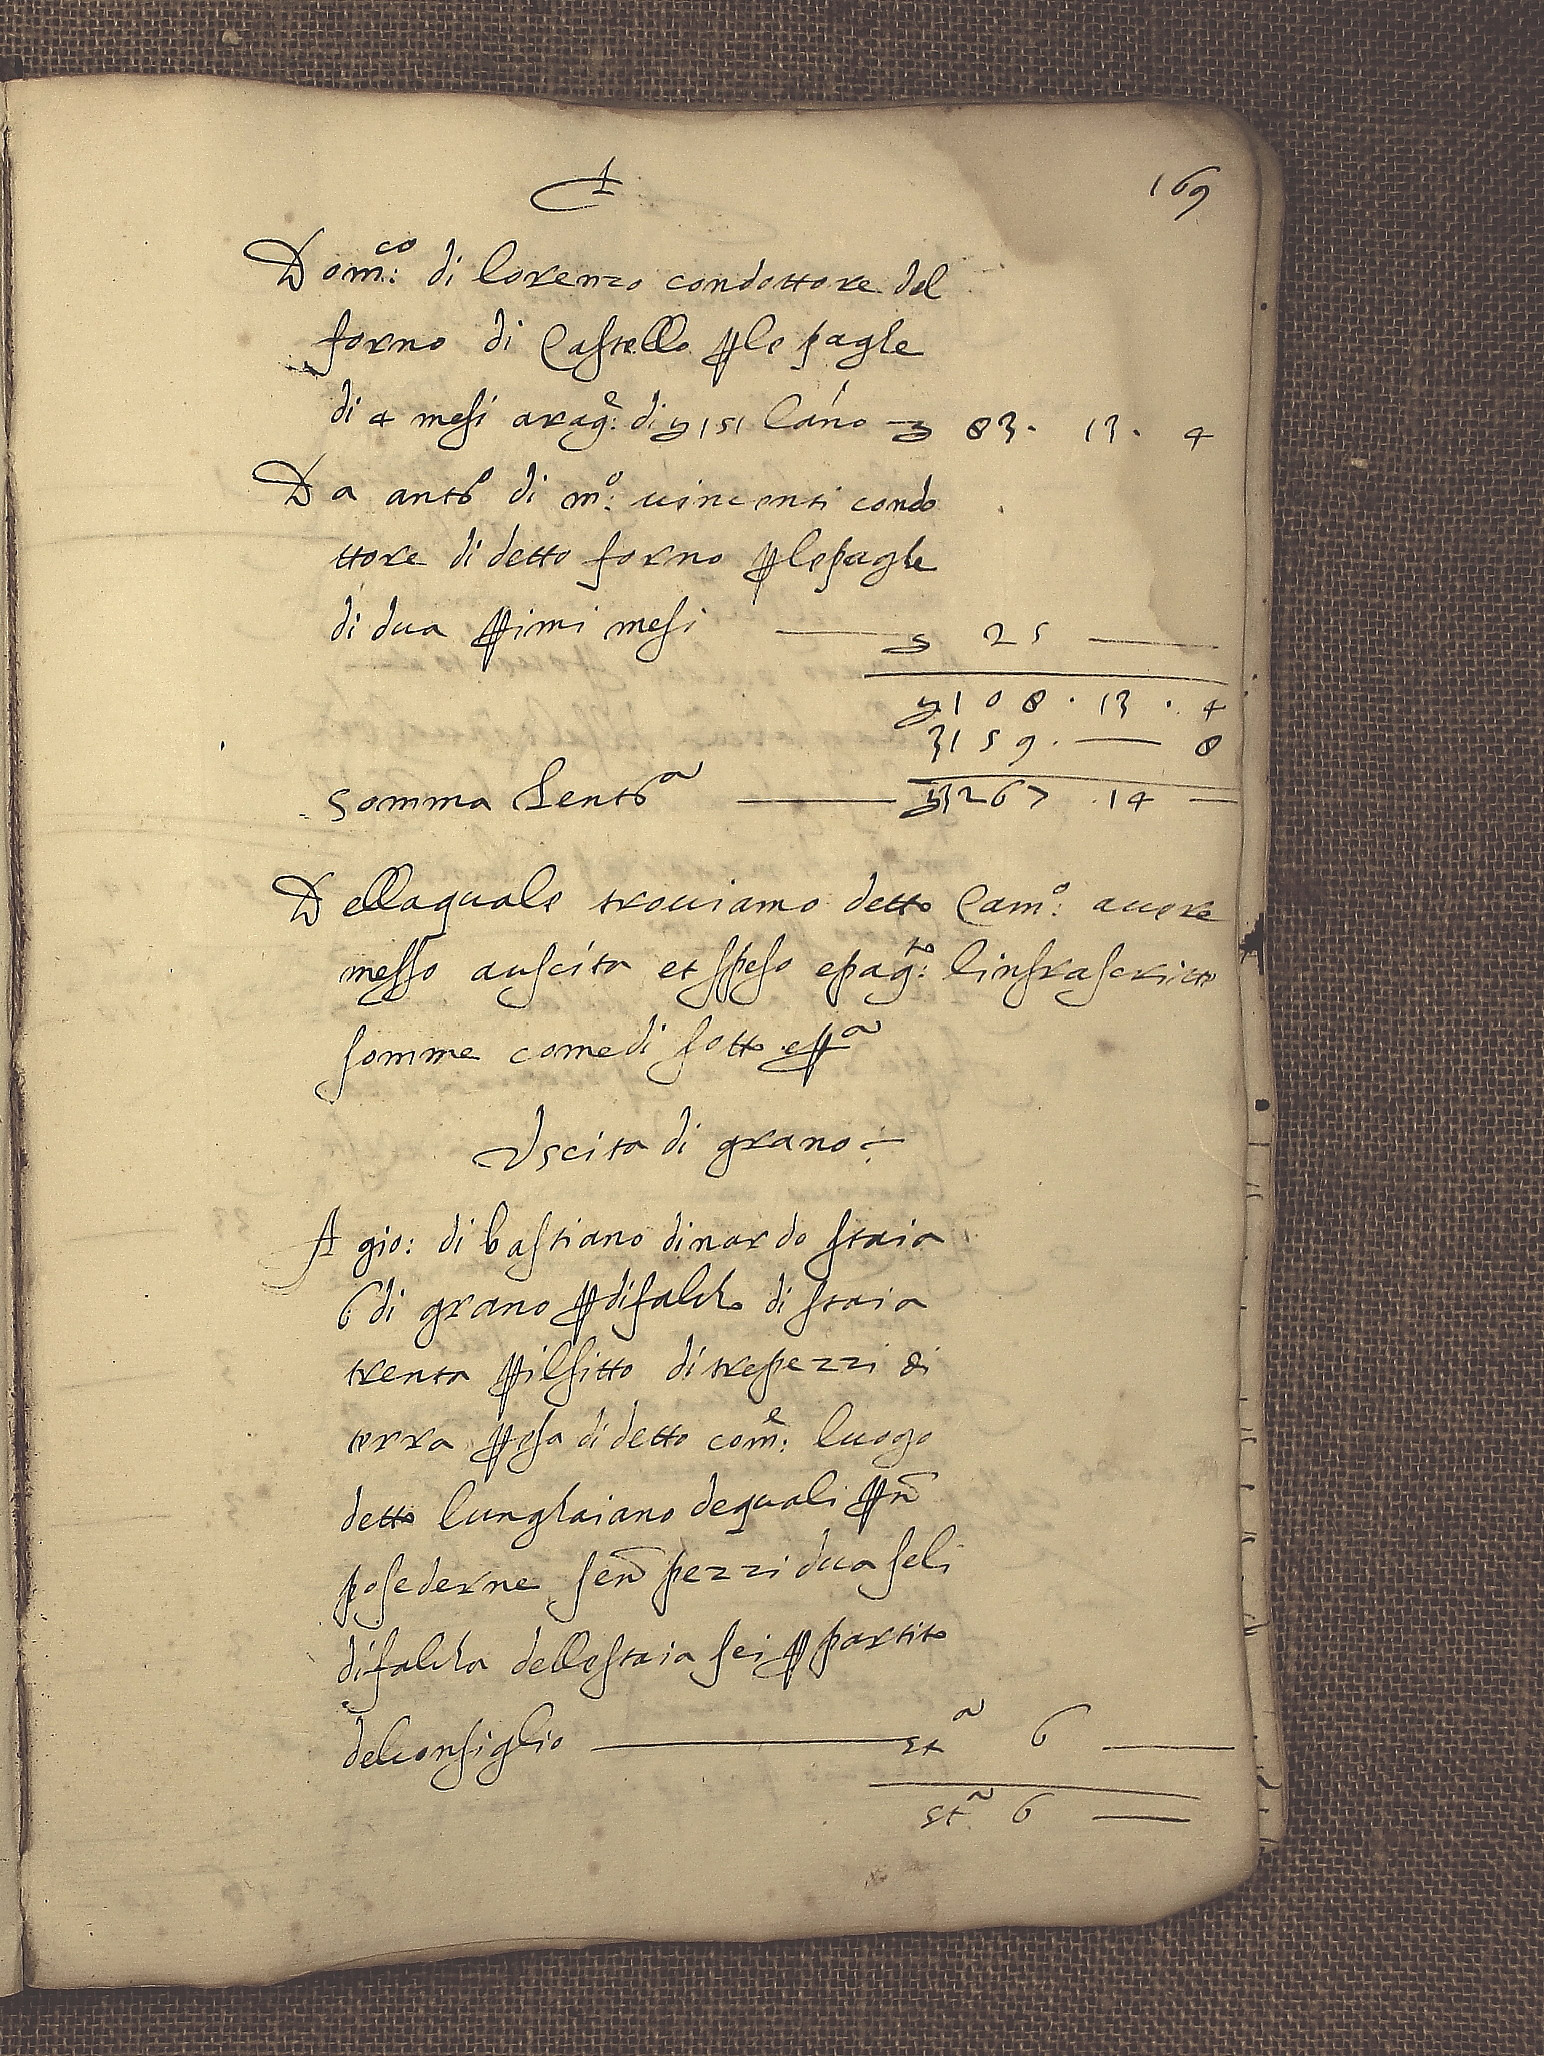 169
Dom.co di lorenzo condottore del
forno di Castello p le paghe
di 4 mesi a rag.e di £ 151 lanno £ 83. 13. 4
Da ant.o di m.o uincenti condo
ttore di detto forno p le paghe
di dua pimi mesi — £ 25 —
£ 108. 13. 4
3159. — 8
Somma lent.a — £ 3267 .14 —
Della quale trouiamo detto Cam.o auere
messo auscita et speso e pag.to linfrascritte
somme come di sotto e p.a
Vscita di grano
A gio: di bastiano di nardo staia
6 di grano p difalcho di staia
trenta p il fitto di tre pezzi di
terra p esa di detto com.e luogo
detto lunghaiano de quali p nō
posederne senō pezzi dua seli
difalcha delle staia sei p partito
del consiglio — st.a 6 —
st.a 6 —